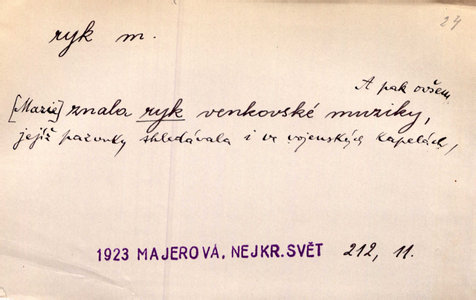 24
ryk m.
A pak ovšem
[Marie] znala ryk venkovské muziky,
jejíž pazvuky shledávala i ve vojenských kapelách,
1923 MAJEROVÁ, NEJKR. SVĚT 212, 11.